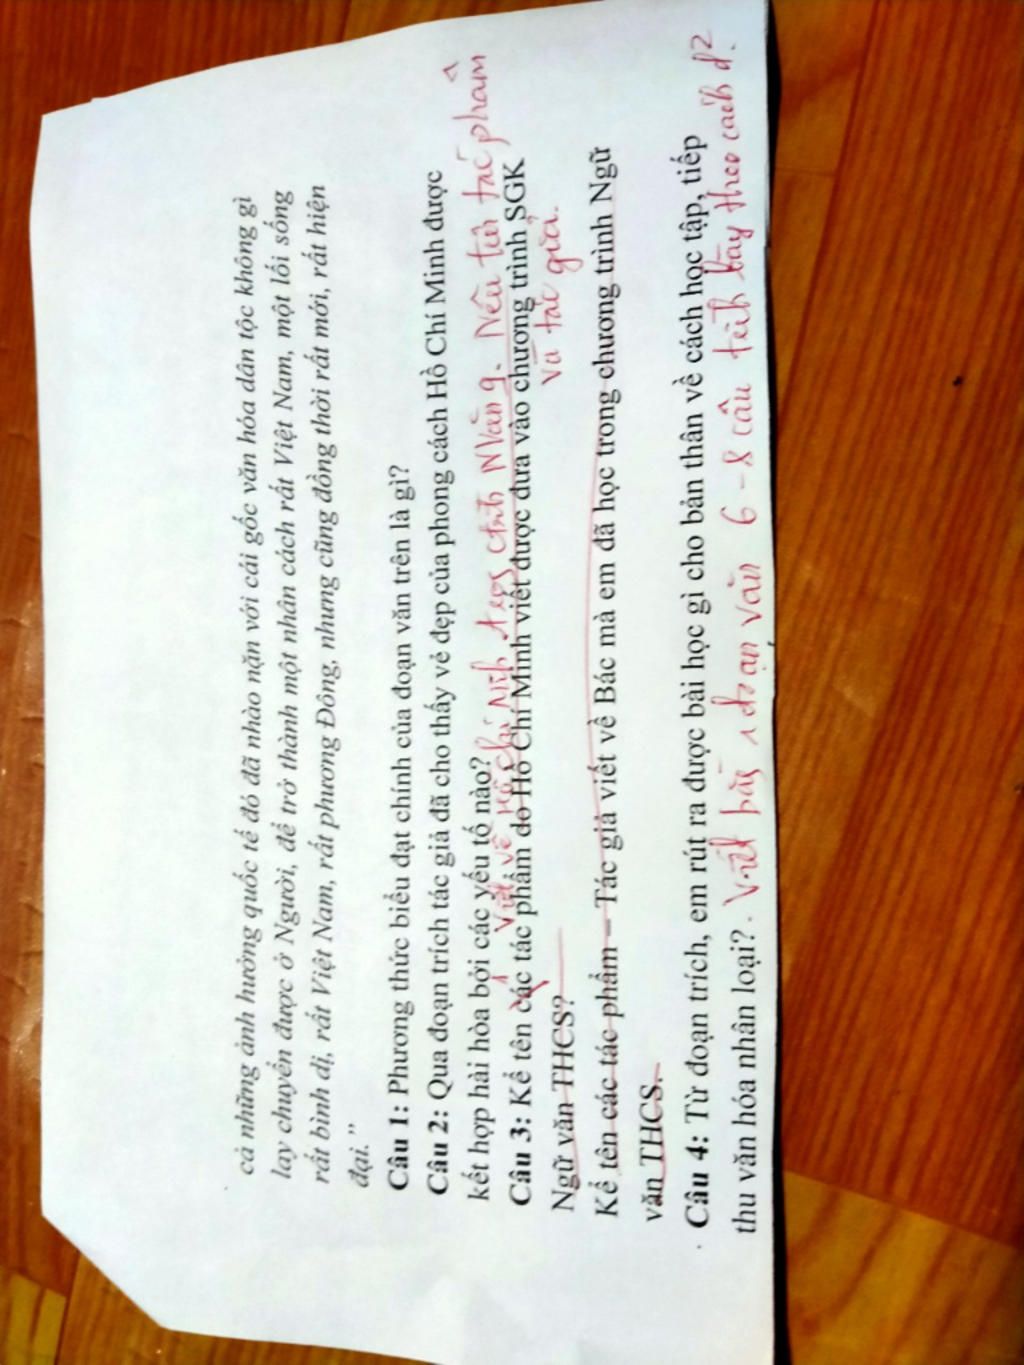 cả những ảnh hưởng quốc tế đó đã nhào nặn với cái gốc văn hóa dân tộc không gì
lay chuyển được ở Người, để trở thành một nhân cách rất Việt Nam, một lối sống
rất bình dị, rất Việt Nam, rất phương Đông, nhưng cũng đồng thời rất mới, rất hiện
đại.”
Câu 1: Phương thức biểu đạt chính của đoạn văn trên là gì?
Câu 2: Qua đoạn trích tác giả đã cho thấy vẻ đẹp của phong cách Hồ Chí Minh được
kết hợp hài hòa bởi các yếu tố nào?
1 Viết về Hồ Chí Minh trong ctrình NVăn 9. Nêu tên tác phẩm
Câu 3: Kể tên các tác phẩm do Hồ Chí Minh viết được đưa vào chương trình SGK
và tác giả.
Ngữ văn THCS?
Kể tên các tác phẩm – Tác giả viết về Bác mà em đã học trong chương trình Ngữ
văn THCS.
Câu 4: Từ đoạn trích, em rút ra được bài học gì cho bản thân về cách học tập, tiếp
thu văn hóa nhân loại? Viết bằng 1 đoạn văn 6 - 8 câu trình bày theo cách d?